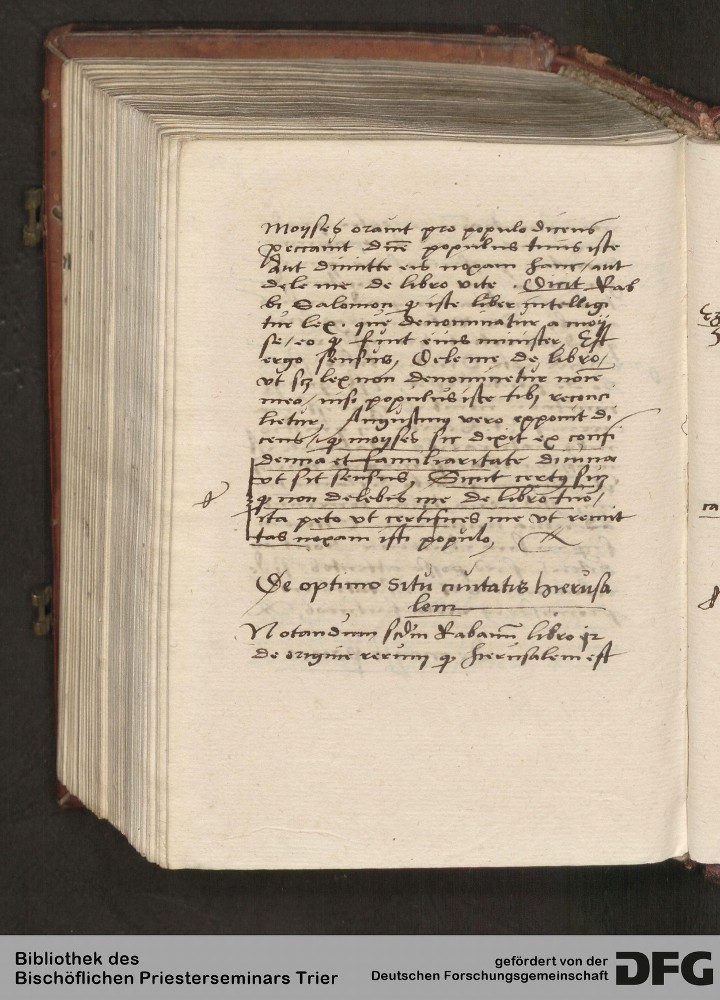 Moyses orauit pro populo dicens
peccauit dñe populus tuus iste
Aut dimitte eis noxam hanc / aut
dele me de libro vite . Dicit Rab
bi Salomon ꝙ iste liber intelligi
tur lex . que denominatur a moÿ
se / eo ꝙ fuit eius minister, Est
ergo sensus, Dele me de libro /
vt scꝫ lex non denominetur noīe
meo / nisi populus iste tibi reconci
lietur, Augustinꝰ vero exponit di
cens / ꝙ moyses sic dixit ex confi
dencia et familiaritate diuina
vt sit sensus, Sicut certꝰ sum
ꝙ non delebis me de libro tuo /
ita peto vt certifices me vt remit
tas noxam isti populo,
De optimo situ ciuitatis hierusa
lem
Notandum scd̄m Rabanū libro
de origine rerum ꝙ hierusalem est
ca
Bibliothek des
Bischöflichen Priesterseminars Trier
gefördert von der
Deutschen Forschungsgemeinschaft
DFG